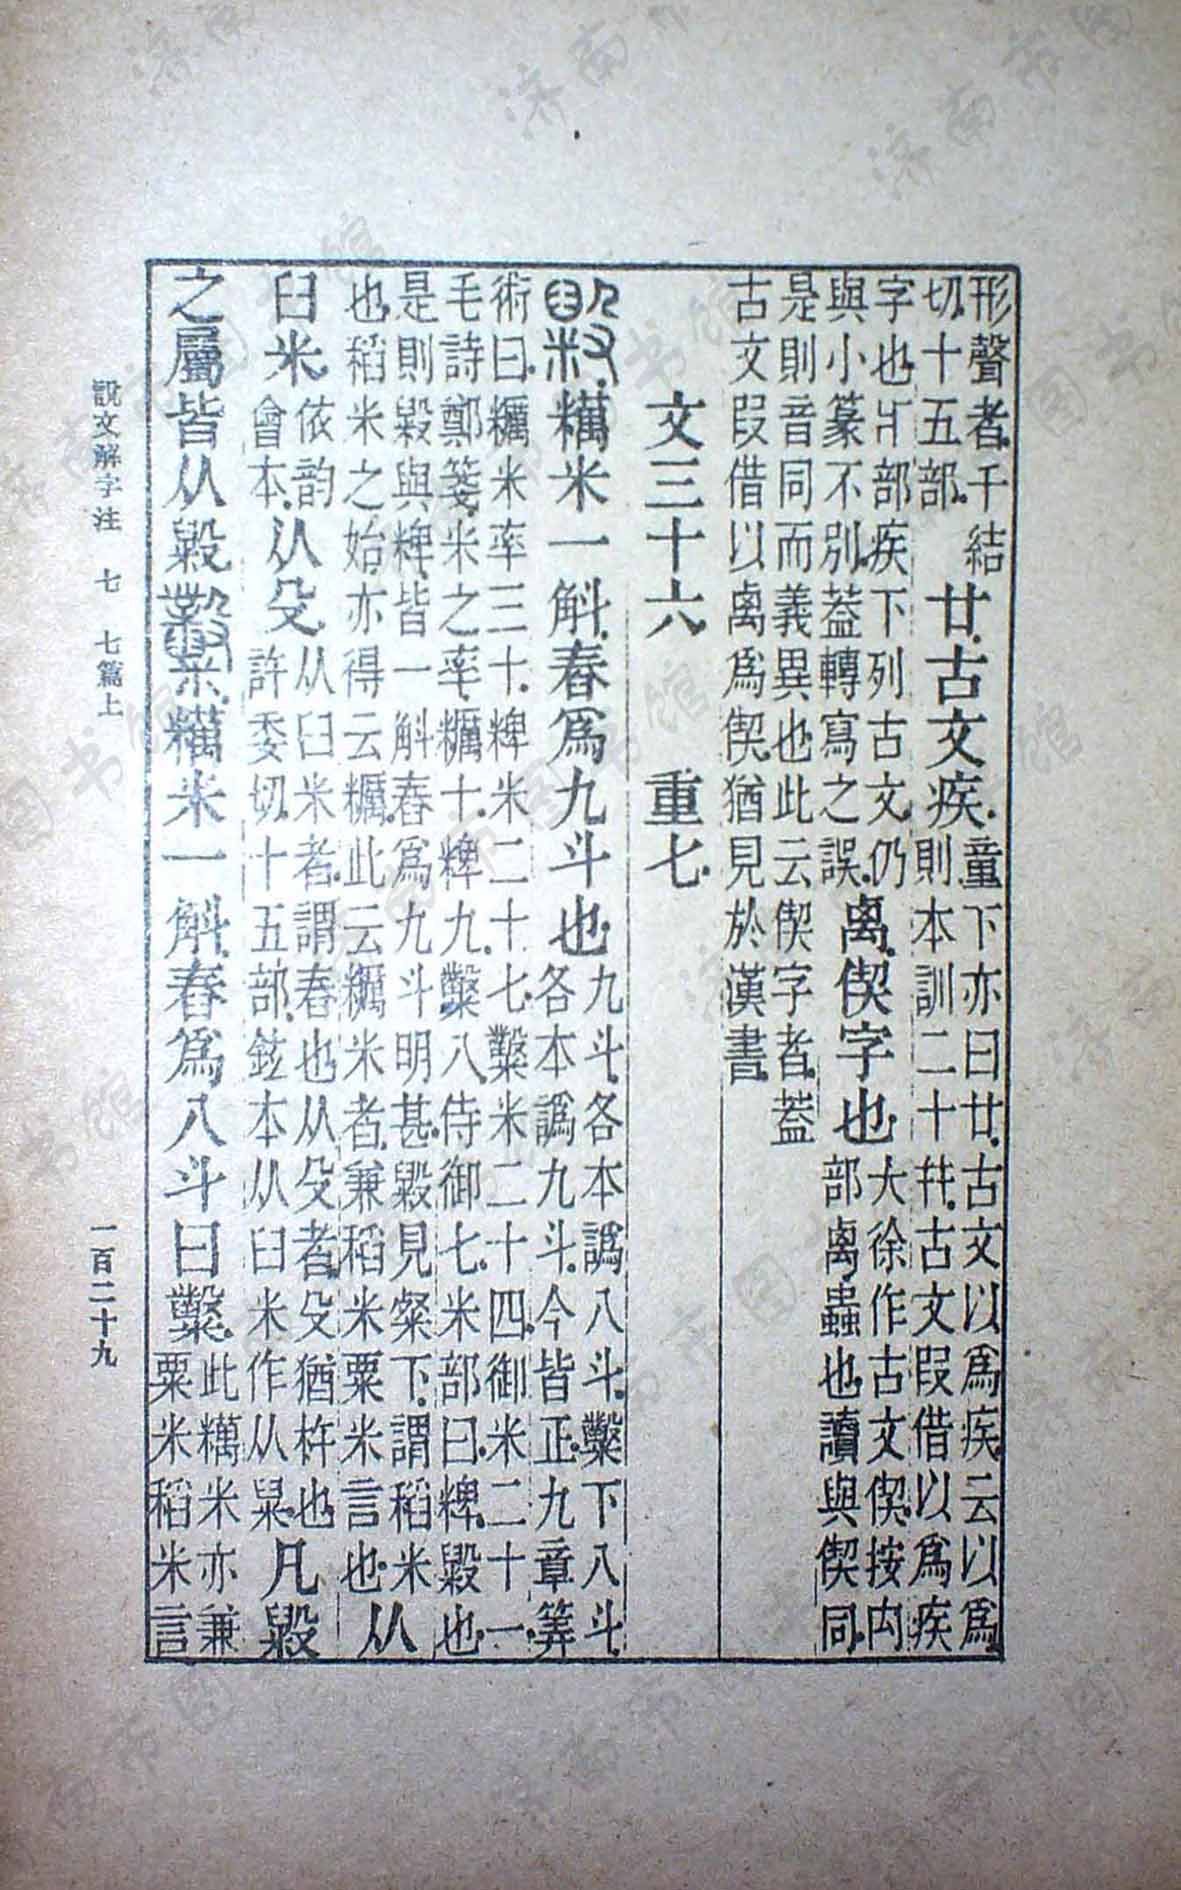 形聲者千結
切十五部
廿古文疾
童下亦曰廿古文以爲疾云以爲
則本訓二十廾古文叚借以爲疾
字也爿部疾下列古文仍
與小篆不別葢轉寫之誤
离偰字也
大徐作古文偰按禸
部离蟲也讀與偰同
是則音同而義異也此云偰字者葢
古文叚借以离爲偰猶見於漢書
文三十六　重七
毇䊪米一斛舂爲九斗也
九斗各本譌八斗糳下八斗
各本譌九斗今皆正九章筭
術曰糲米率三十粺米二十七糳米二十四御米二十一
毛詩鄭箋米之率糲十粺九糳八侍御七米部曰粺毇也
是則毇與粺皆一斛舂爲九斗明甚毇見粲下謂稻米
也稻米之始亦得云糲此云糲米者兼稻米粟米言也
从
臼米
依韵
會本
从殳
从臼米者謂舂也从殳者殳猶杵也
許委切十五部鉉本从臼米作从毇
凡毇
之屬皆从毇糳䊪米一斛舂爲八斗曰糳
此䊪米亦兼
粟米稻米言
說文解字注　七　七篇上　一百二十九
济南市图书馆